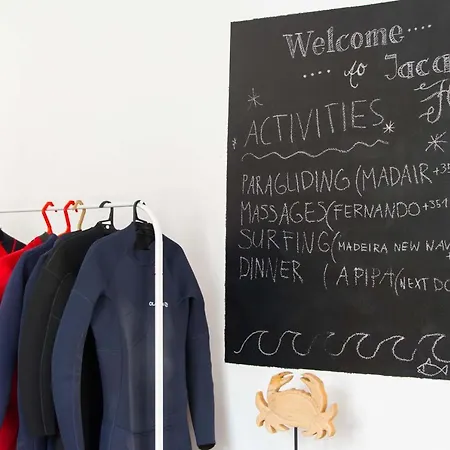 Welcome....
.... to Jaca
ACTIVITIES
PARAGLIDING (MADAIR +35
MASSAGES (FERNANDO +351
SURFING (MADEIRA NEW WAV
DINNER ( A PIPA (NEXT DO